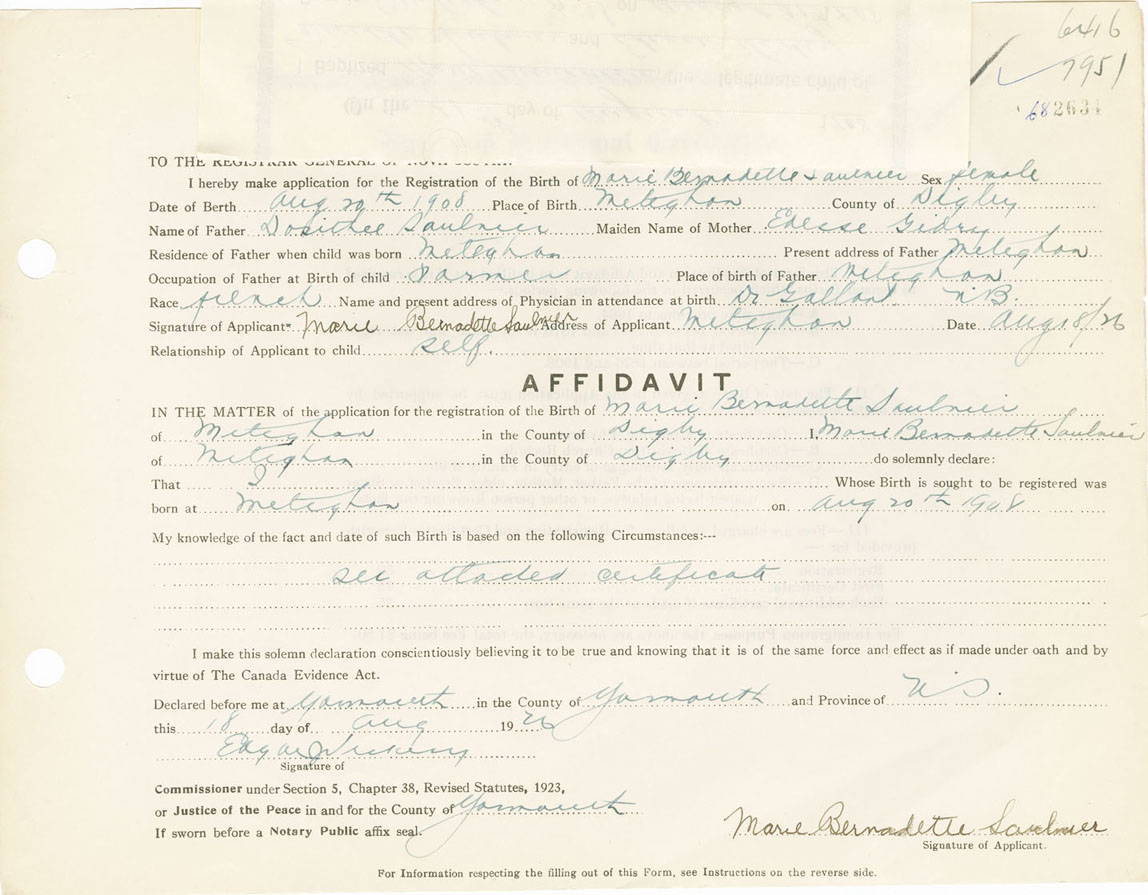 6416
7951
682634
Baptized the legitimate child of
On the day of
TO THE REGISTRAR GENERAL OF NOVA SCOTIA:
I hereby make application for the Registration of the Birth of Marie Bernadette Saulnier Sex female
Date of Berth Aug 20th 1908 Place of Birth Meteghan County of Digby
Name of Father Dosithee Saulnier Maiden Name of Mother Edesse Gidry
Residence of Father when child was born Meteghan Present address of Father Meteghan
Occupation of Father at Birth of child Farmer Place of birth of Father Meteghan
Race french Name and present address of Physician in attendance at birth Dr Gallant N.B.
Signature of Applicant Marie Bernadette Saulnier Address of Applicant Meteghan Date Aug 18/26
Relationship of Applicant to child self.
AFFIDAVIT
IN THE MATTER of the application for the registration of the Birth of Marie Bernadette Saulnier
of Meteghan in the County of Digby I, Marie Bernadette Saulnier
of Meteghan in the County of Digby do solemnly declare:
That I Whose Birth is sought to be registered was
born at Meteghan on Aug 20th 1908
My knowledge of the fact and date of such Birth is based on the following Circumstances:---
see attached certificate
I make this solemn declaration conscientiously believing it to be true and knowing that it is of the same force and effect as if made under oath and by
virtue of The Canada Evidence Act.
Declared before me at Yarmouth in the County of Yarmouth and Province of N.S.
this 18 day of Aug 1926
Edgar
Signature of
Commissioner under Section 5, Chapter 38, Revised Statutes, 1923,
or Justice of the Peace in and for the County of Yarmouth
If sworn before a Notary Public affix seal.
Marie Bernadette Saulnier
Signature of Applicant.
For Information respecting the filling out of this Form, see Instructions on the reverse side.